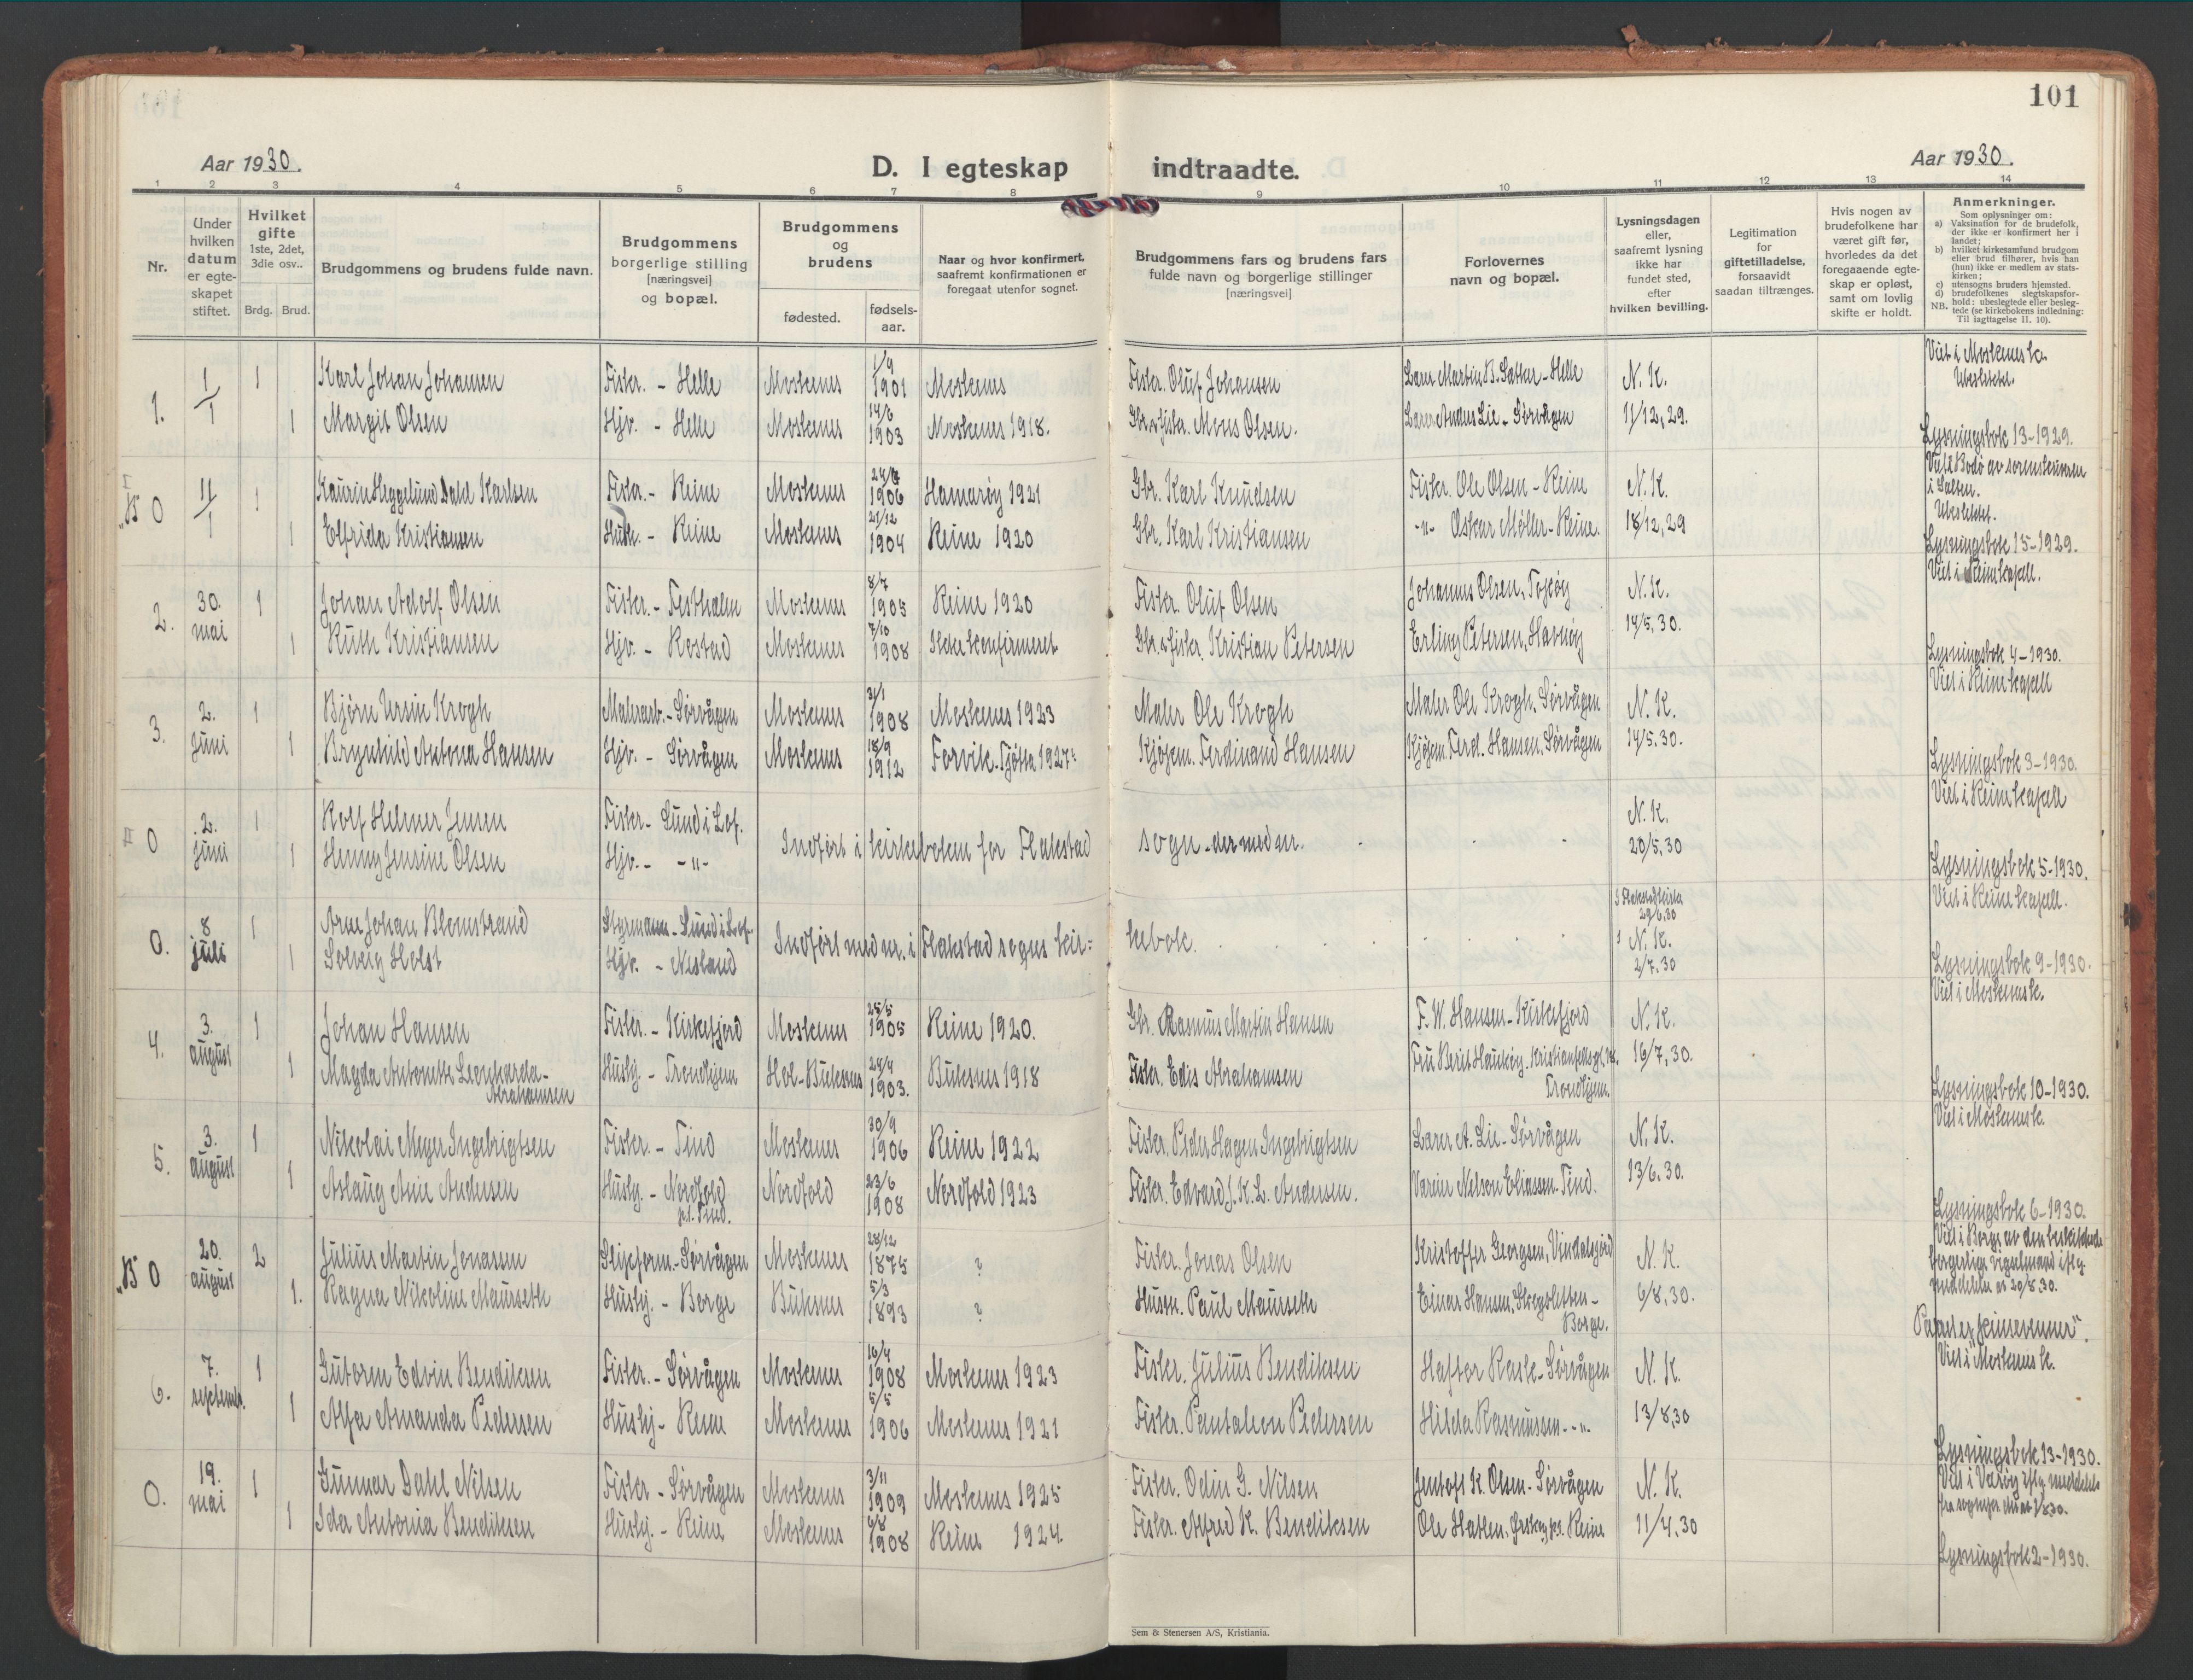 101
Aar 1930.
D. I egteskap indtraadte.
Aar 1930.
1 2 3 4 5 6 7 8 9 10 11 12 13 14
Nr.
Under hvilken datum er egte-skapet stiftet.
Hvilket gifte 1ste, 2det, 3die osv..
Brdg. Brud.
Brudgommens og brudens fulde navn.
Brudgommens borgerlige stilling [næringsvei] og bopæl.
Brudgommens og brudens
fødested. fødsels-aar.
Naar og hvor konfirmert, saafremt konfirmationen er foregaat utenfor sognet.
Brudgommens fars og brudens fars fulde navn og borgerlige stillinger [næringsvei]
Forlovernes navn og bopæl.
Lysningsdagen eller, saafremt lysning ikke har fundet sted, efter hvilken bevilling.
Legitimation for giftetilladelse, forsaavidt saadan tiltrænges.
Hvis nogen av brudefolkene har været gift før, hvorledes da det foregaaende egte-skap er opløst, samt om lovlig skifte er holdt.
Anmerkninger.
Som oplysninger om:
a) Vaksination for de brudefolk, der ikke er konfirmert her i landet;
b) hvilket kirkesamfund brudgom eller brud tilhører, hvis han (hun) ikke er medlem av stats-kirken;
c) utensogns bruders hjemsted.
d) brudefolkenes slegtskapsfor-hold: ubeslegtede eller besleg-tede (se kirkebokens indledning: Til iagttagelse II. 10).
NB.
1. 1/1 1 Karl Johan Johansen Fisker. - Helle Moskenes 1/9 1901 Moskenes Fisker. Oluf Johansen Lærer Martin B. Sattar - Helle N. K. Viet i Moskenes k. Ubeslektet.
1 Margit Olsen Hjv. - Helle Moskenes 14/6 1903 Moskenes 1918. Gbr. & fisker. Mons Olsen. Lærer Andreas Lie - Sørvågen 11/12, 29. Lysningsbok 13-1929.
"B" 0 11/1 1 Kaurin Heggelund Dahl Karlsen Fisker. - Reine Moskenes 1906 Hamarøy 1921 Gbr. Karl Knudsen Fisker. Ole Olsen - Reine N. K. Viet i Bodø av sorenskriveren i Salten. Ubeslektet.
1 Elfrida Kristiansen Hush. - Reine Moskenes 21/12 1904 Reine 1920 Gbr. Karl Kristiansen -"- Oskar Møller - Reine. 18/12, 29 Lysningsbok 15-1929.
2. 30. mai 1 Johan Adolf Olsen Fisker. - Festhælen Moskenes 8/7 1905 Reine 1920 Fisker. Oluf Olsen Johannes Olsen, Toppøy N. K. Viet i Reine kapell.
1 Ruth Kristiansen Hjv. - Rostad Moskenes 7/10 1908 Ikke konfirmeret Gbr. & fisker. Kristian Petersen Erling Petersen, Havnøy 14/5, 30. Lysningsbok 4-1930.
3. 2. juni 1 Bjørn Ursin Krogh Malerarb. - Sørvågen Moskenes 31/1 1908 Moskenes 1923 Maler Ole Krogh Maler Ole Krogh, Sørvågen N. K. Viet i Reine kapell
1 Brynhild Antona Hansen Hjv. - Sørvågen Moskenes 18/9 1912 Forvik - Tjøtta 1927. Kjøpm. Ferdinand Hansen Kjøpm. Ferd. Hansen, Sørvågen 14/5. 30. Lysningsbok 3-1930.
0 2. juni 1 Rolf Helmer Jensen Fisker - Sund i Lof. Indført i kirkeboken for Flakstad sogn - der med nr. N. K. Viet i Reine kapell
1 Henny Jensine Olsen Hjv. - -"- 20/5, 30 Lysningsbok 5-1930.
0. 8 juli 1 Arne Johan Blomstrand Styrmann - Sund i Lof. Indført med nr. i Flakstad sogns kir=kebok. I Flakstad kirke 29/6, 30 Viet i Reine kapell.
1 Solveig Holst Hjv. - Nesland N. K. 2/7. 30 Lysningsbok 9-1930.
4. 3. august 1 Johan Hansen Fisker. - Kirkefjord Moskenes 25/5 1905 Reine 1920. Gbr. Rasmus Martin Hansen F. W. Hansen - Kirkefjord N. K. Viet i Moskenes k.
1 Magda Antonette Leonharda - Abrahamsen Hushj. - Trondhjem Hol - Buksnes 24/4 1903. Buksnes 1918 Fisker. Edis Abrahamsen Fru Berit Haukøy, Trondhjem. 16/7, 30. Lysningsbok 10-1930.
5. 3. august 1 Nikolai Meyer Ingebrigtsen Fisker. - Tind Moskenes 30/9 1906 Reine 1922 Fisker. Peder Hagen Ingebrigtsen Lærer A. Lie - Sørvågen N. K. Viet i Moskenes k.
1 Aslaug Anie Andersen Hushj. - Nordfold p.t. Tind. Nordfold 23/6 1908 Nordfold 1923 Fisker. Edvard J. K. L. Andersen. Værin Nelson Eliassen - Tind. 13/6. 30. Lysningsbok 6-1930.
"B" 0 20. august 2 Julius Martin Jonassen Skjeform. - Sørvågen Moskenes 28/12 1875 ? Fisker. Jonas Olsen Kristoffer Georgsen, N. K. Viet i Borge av den borgerlige vigselmand iflg. meddelelse av 20/8. 30.
1. Ragna Nikoline Maurseth Hushj. - Borge Buksnes 5/3 1893 ? Husm. Paul Maurseth Einar Hansen, Borge. 6/8, 30.
6. 7. september. 1 Gutorm Edvin Bendiksen Fisker. - Sørvågen Moskenes 16/4 1908 Moskenes 1923 Fisker. Julius Bendiksen Haftor Rask - Sørvågen N. K. Viet i Moskenes k.
1 Alfa Amanda Pedersen Hushj - Reine Moskenes 5/5 1906 Moskenes 1921 Fisker. Pantaleon Pedersen Hilda Rasmussen - -"- 13/8, 30 Lysningsbok 13-1930.
0. 19. mai 1 Gunnar Dahl Nilsen Fisker - Sørvågen Moskenes 3/11 1909 Moskenes 1925 Fisker. Odin G. Nilsen Jentoft K. Olsen - Sørvågen N. K. Viet i Værøy iflg. meddelelse
1 Ida Antonia Bendiksen Hushj. - Reine Moskenes 1908 Reine 1924. Fisker. Alfred K. Bendiksen Ole Hatlen, Ørskog, p.t. Reine 11/4, 30 Lysningsbok 2-1930.
Sem & Stenersen A/S, Kristiania.